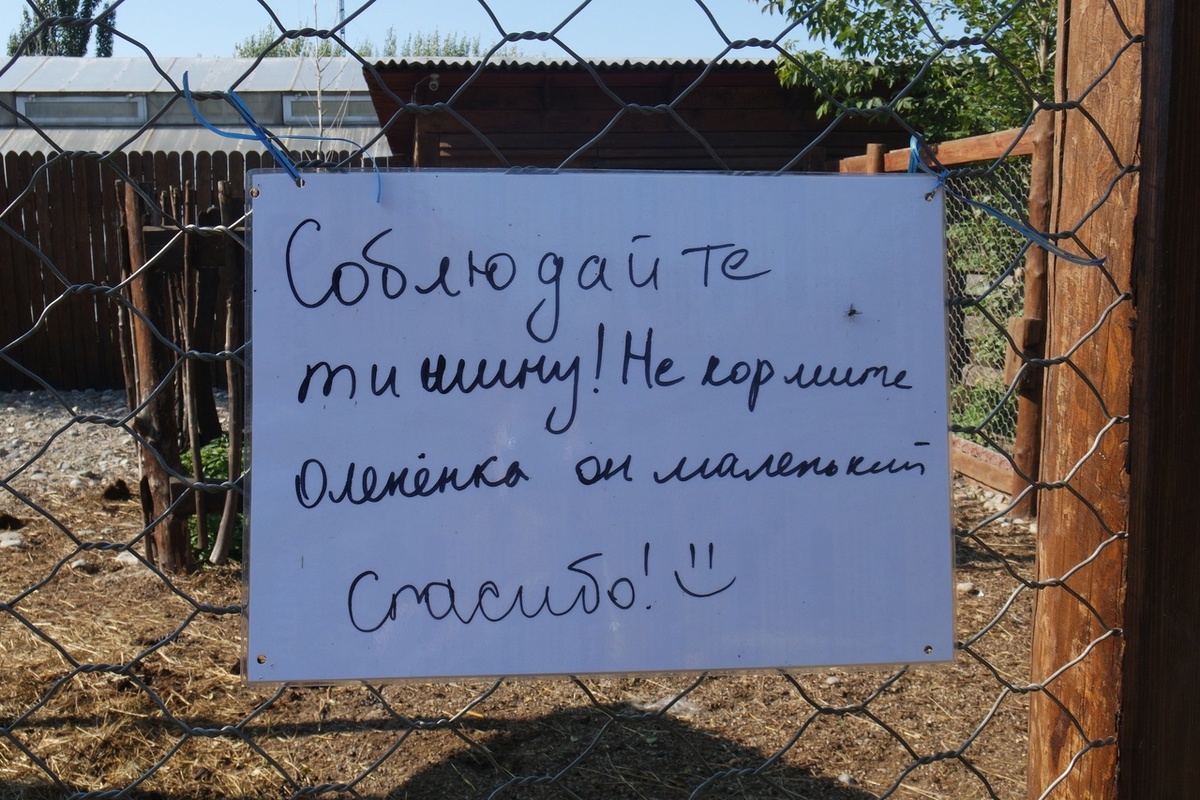 Соблюдайте
тишину! Не кормите
Оленёнка он маленький
Спасибо!